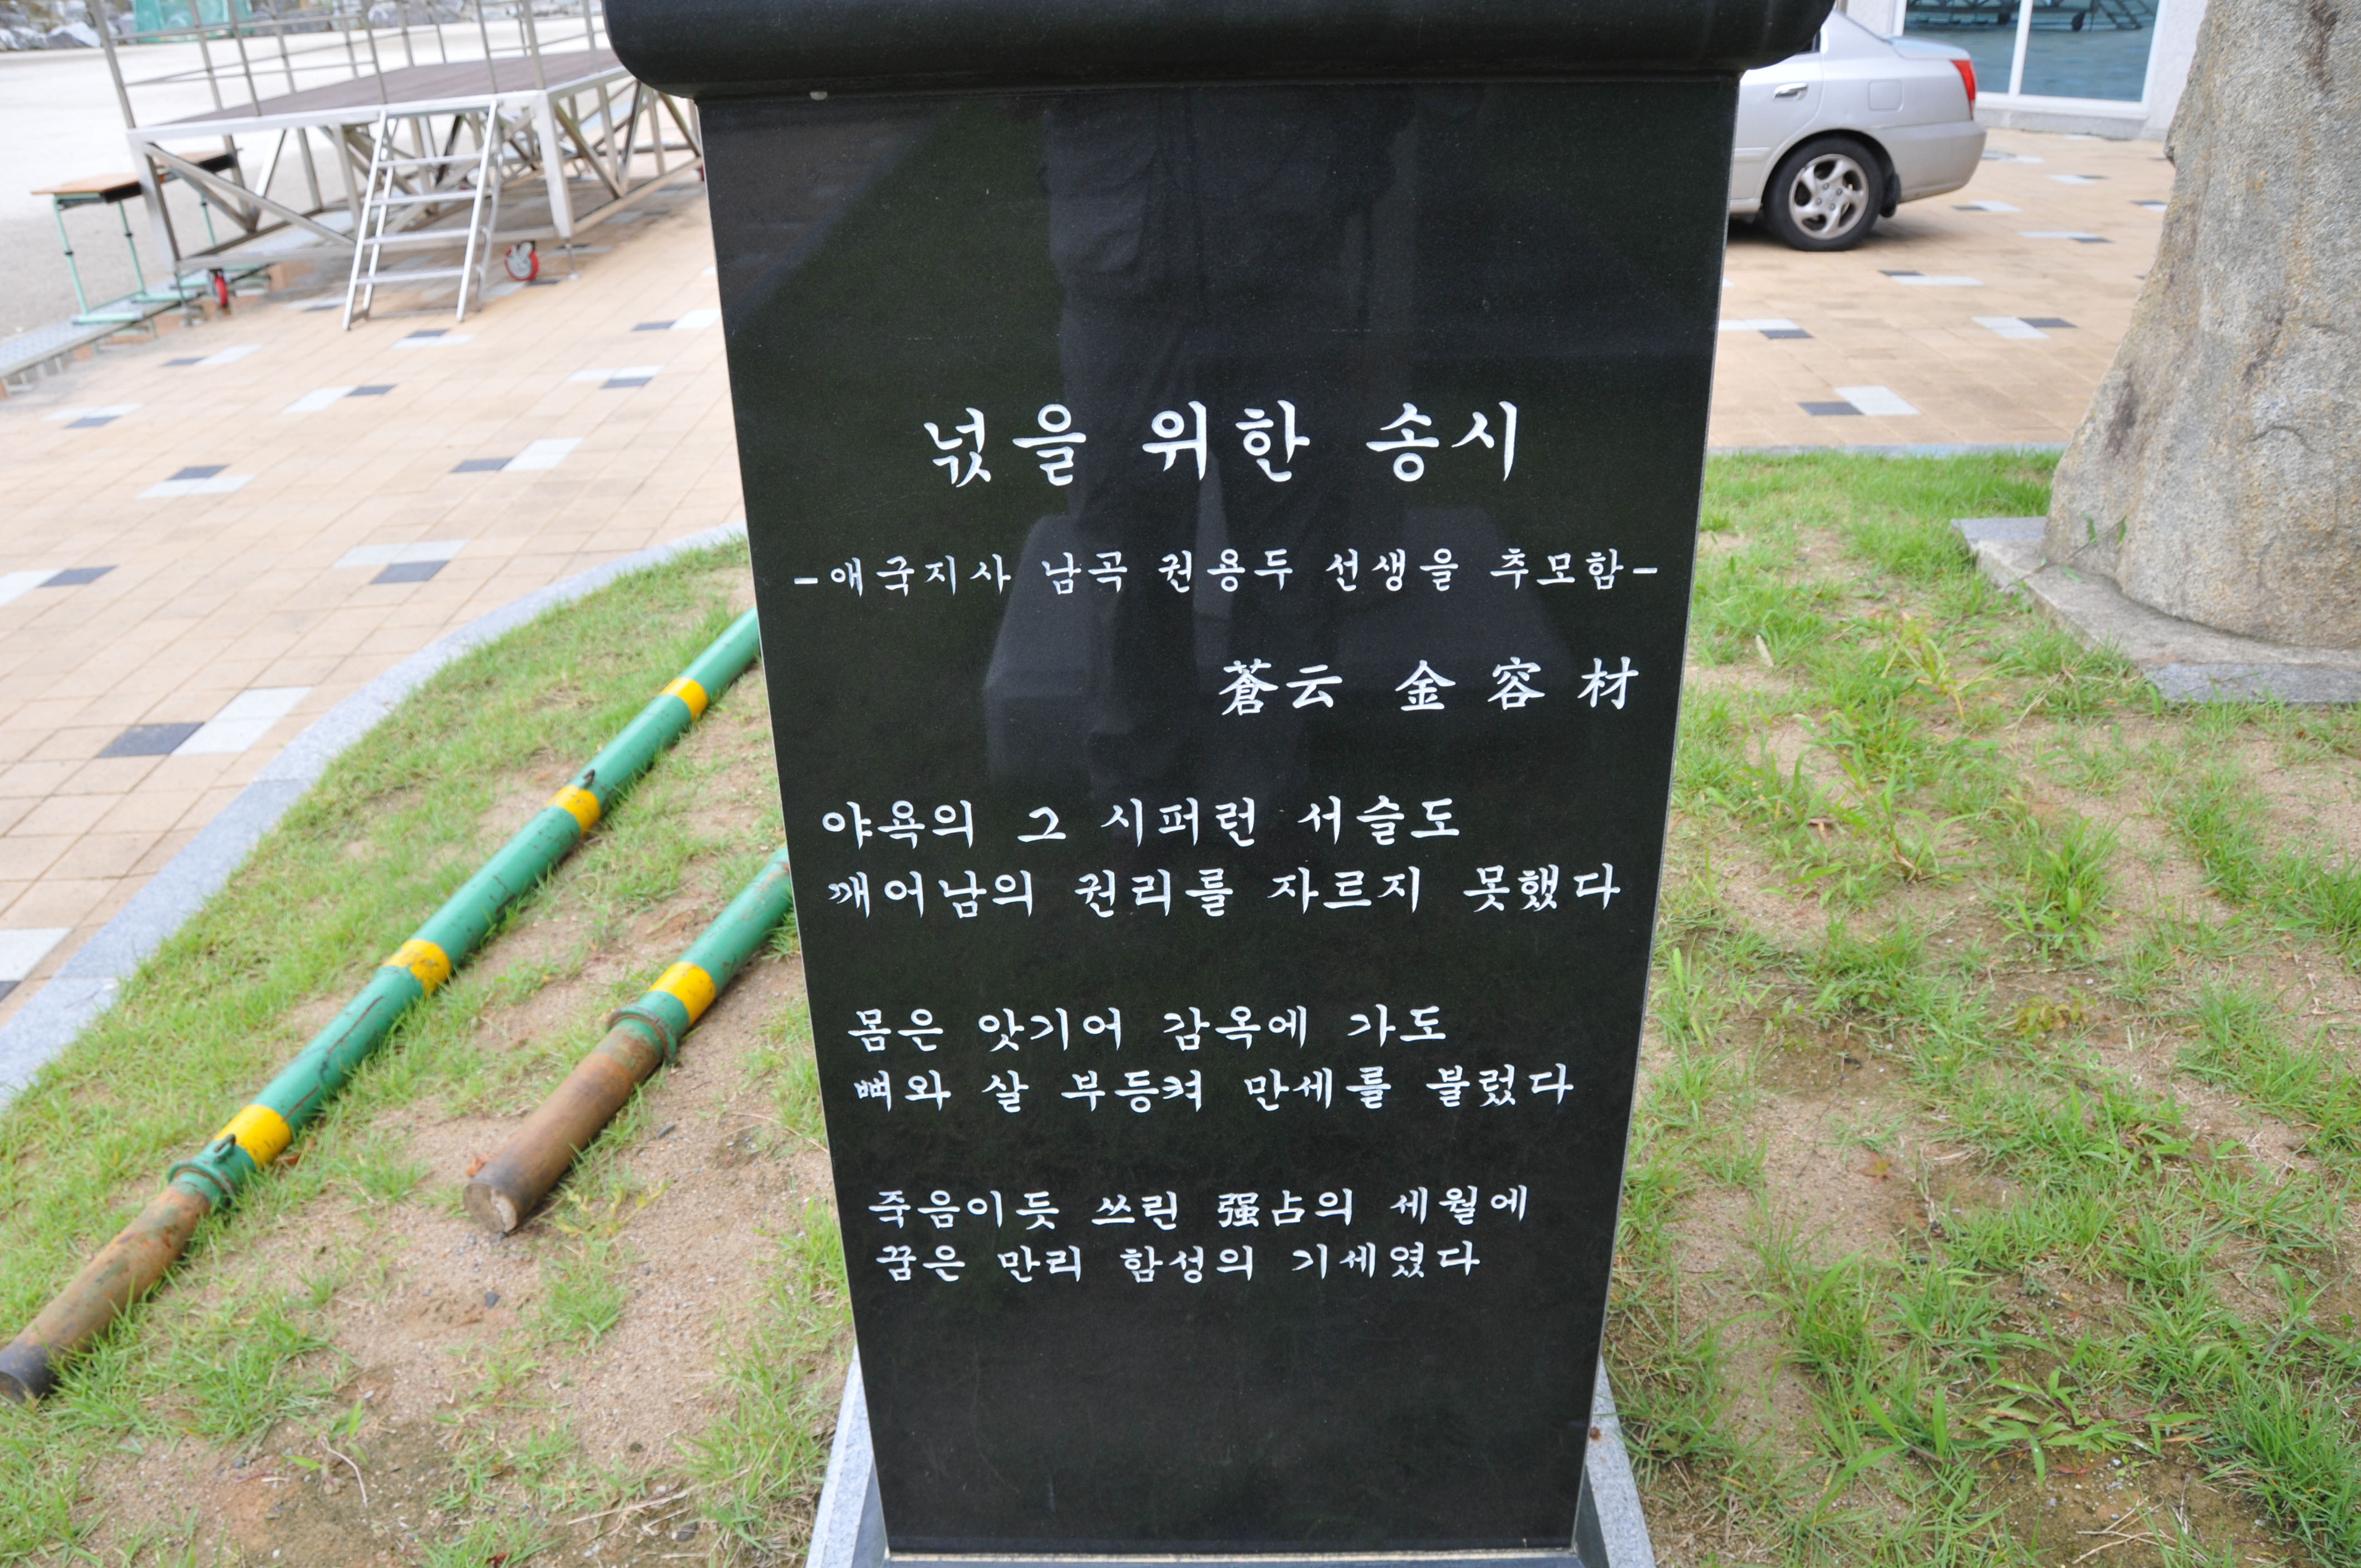 넋을 위한 송시
-애국지사 남곡 권용두 선생을 추모함-
蒼云 金容材
야욕의 그 시퍼런 서슬도
깨어남의 권리를 자르지 못했다
몸은 앗기어 감옥에 가도
뼈와 살 부등켜 만세를 불렀다
죽음이듯 쓰린 强占의 세월에
꿈은 만리 함성의 기세였다